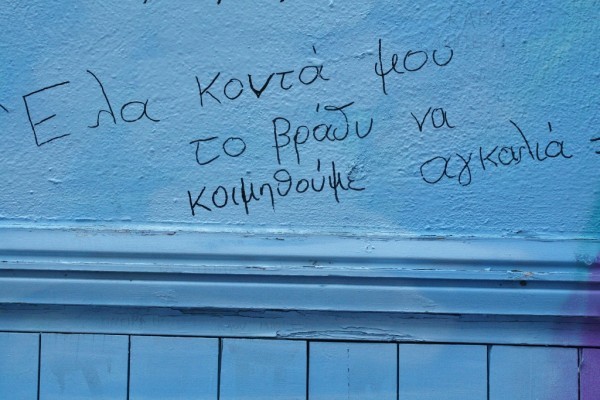 Έλα κοντά μου
το βράδυ να
κοιμηθούμε αγκαλιά